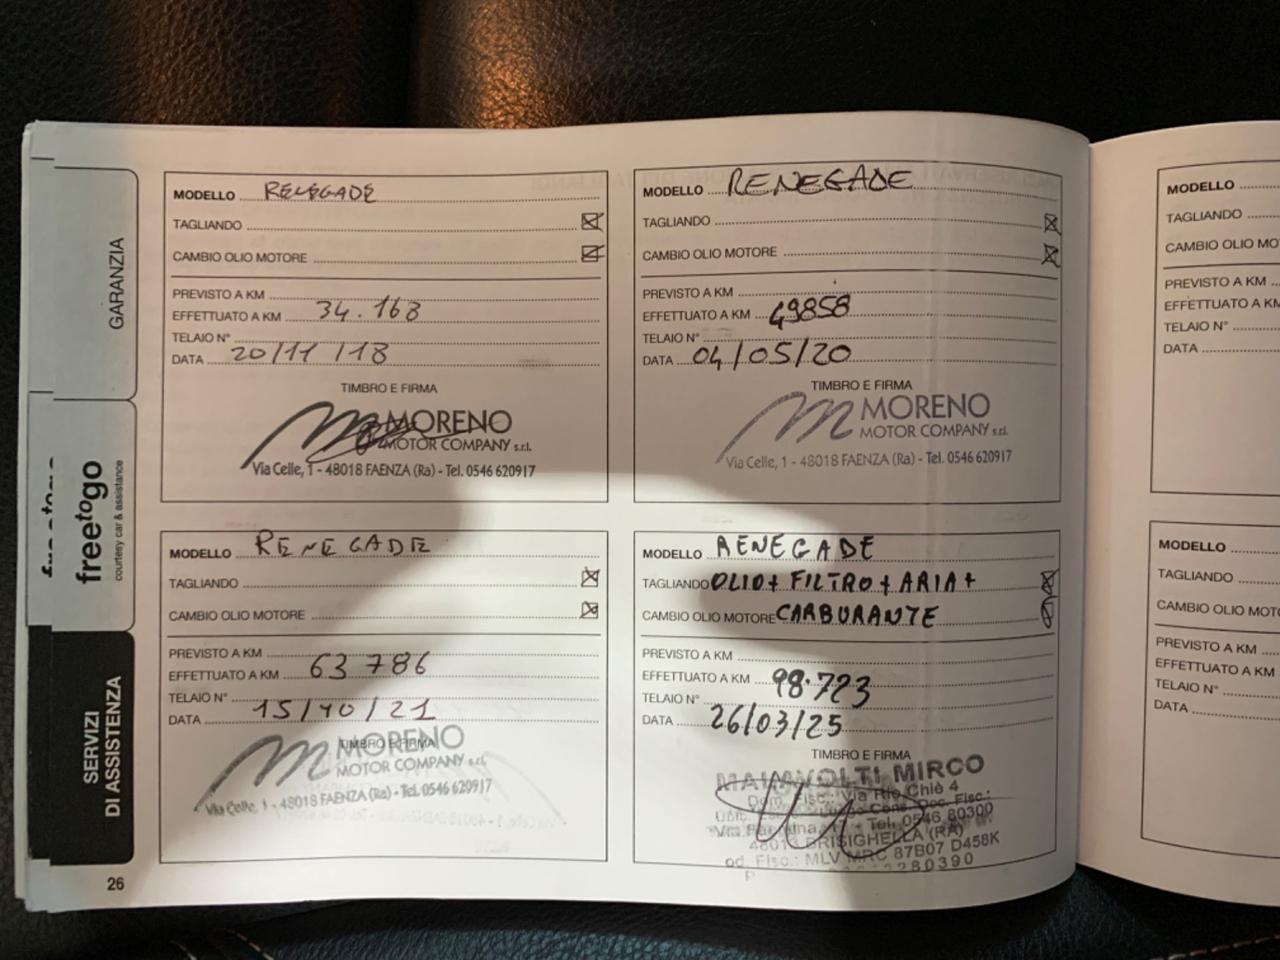 GARANZIA
freetogo
courtesy car & assistance
SERVIZI
DI ASSISTENZA
26
MODELLO RENEGADE
TAGLIANDO
CAMBIO OLIO MOTORE
PREVISTO A KM
EFFETTUATO A KM 34.168
TELAIO N°
DATA 20/11/18
TIMBRO E FIRMA
MORENO
MOTOR COMPANY s.r.l.
Via Celle, 1 - 48018 FAENZA (Ra) - Tel. 0546 620917
MODELLO RENEGADE
TAGLIANDO
CAMBIO OLIO MOTORE
PREVISTO A KM
EFFETTUATO A KM 49858
TELAIO N°
DATA 04/05/20
TIMBRO E FIRMA
MORENO
MOTOR COMPANY s.r.l.
Via Celle, 1 - 48018 FAENZA (Ra) - Tel. 0546 620917
MODELLO RENEGADE
TAGLIANDO
CAMBIO OLIO MOTORE
PREVISTO A KM
EFFETTUATO A KM 63786
TELAIO N°
DATA 15/10/21
TIMBRO E FIRMA
MORENO
MOTOR COMPANY s.r.l.
Via Celle, 1 - 48018 FAENZA (Ra) - Tel. 0546 620917
MODELLO RENEGADE
TAGLIANDO OLIO + FILTRO + ARIA +
CAMBIO OLIO MOTORE CARBURANTE
PREVISTO A KM
EFFETTUATO A KM 98.723
TELAIO N°
DATA 26/03/25
TIMBRO E FIRMA
MALAVOLTI MIRCO
Dom. Fisc.: Via Rio Chiè 4
Doc. Fisc.:
Tel. 0546 80300
BRISIGHELLA (RA)
Fisc.: MLV MRC 87B07 D458K
MODELLO
TAGLIANDO
CAMBIO OLIO
PREVISTO A KM
EFFETTUATO A
TELAIO N°
DATA
MODELLO
TAGLIANDO
CAMBIO OLIO
PREVISTO A KM
EFFETTUATO A KM
TELAIO N°
DATA